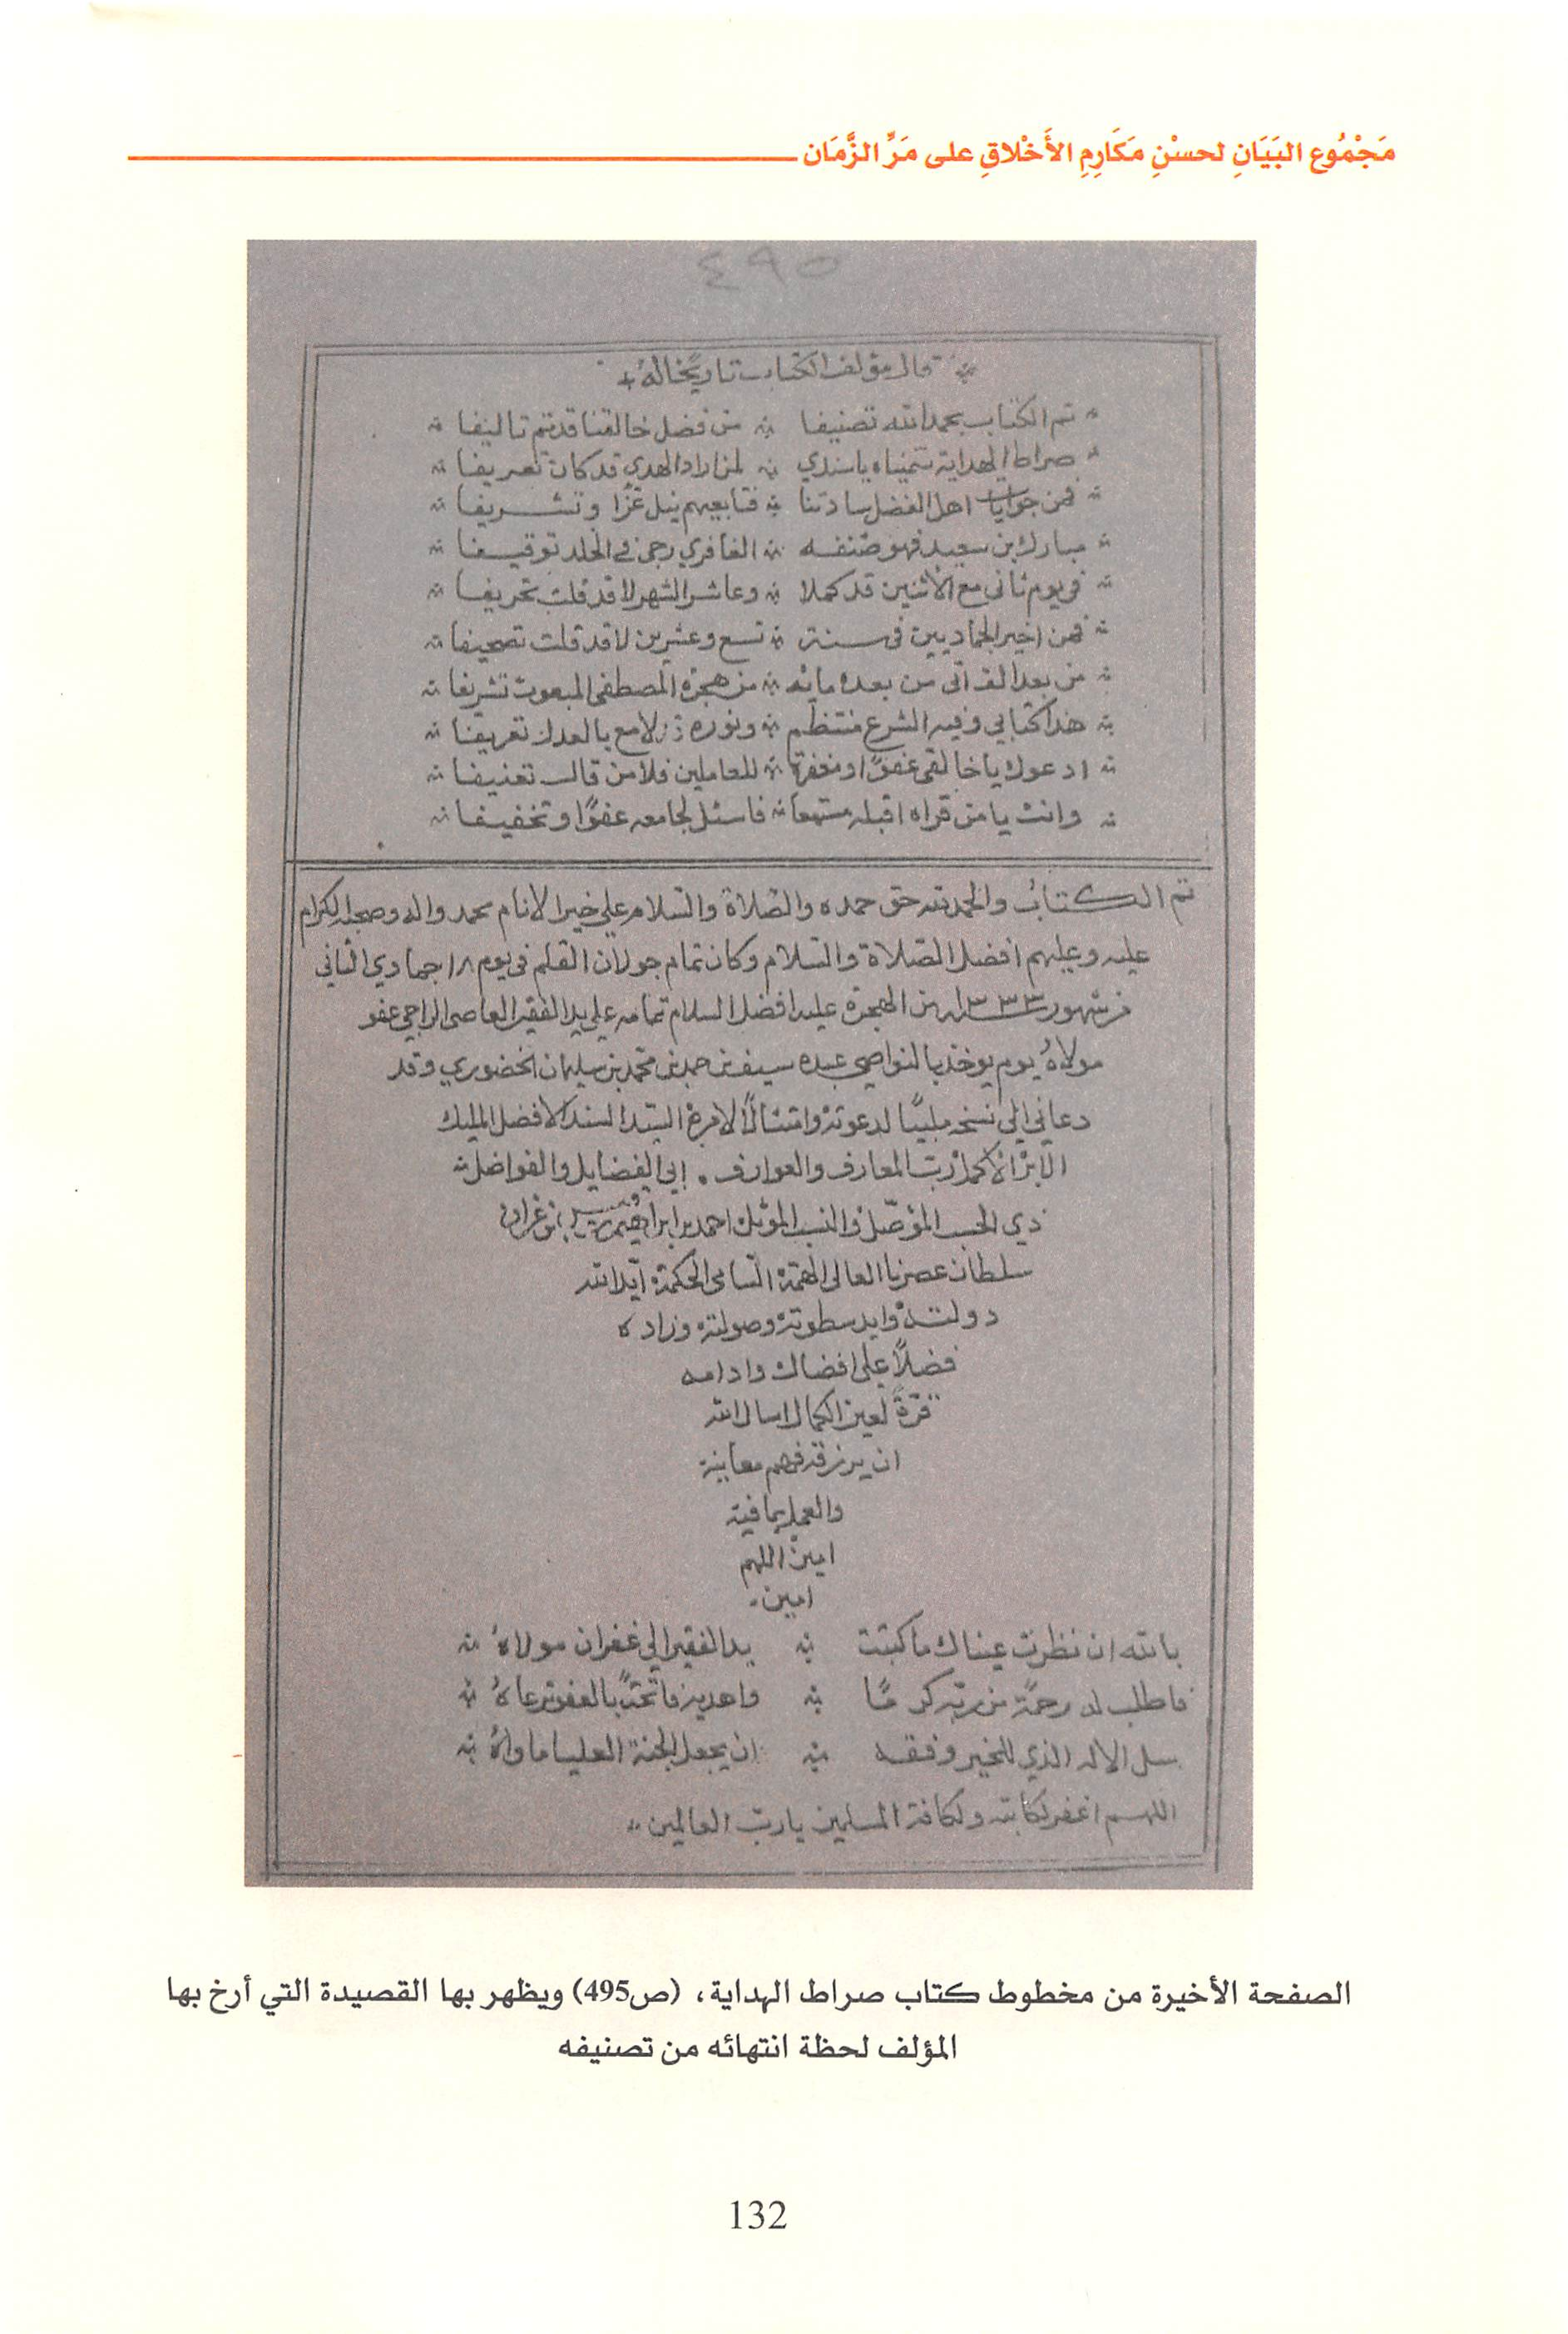 مَجْمُوع البَيَانِ لحسْنِ مَكَارِمِ الأَخْلاقِ على مَرِّ الزَّمَان
٤٩٥
قال مؤلف الكتاب تاريخا له
تم الكتاب بحمد الله تصنيفا من فضل خالقنا قد تم تاليفا
صراط الهداية سميناه ياسندي لمن اراد الهدي قد كان تعريفا
فمن جوابات اهل الفضل سادتنا فتابعيهم نيل عزا وتشريفا
مبارك بن سعيد فهو صنفه الغافري رجى في الخلد توقيفا
في يوم ثاني مع الاثنين قد كملا وعاشر الشهر لا قد قلت تحريفا
فمن اخير الجماديين في سنة تسع وعشرين لا قد قلت تصحيفا
من بعد الف اتى من بعده مائة من هجرة المصطفى المبعوث تشريفا
هذا كتابي وفيه الشرع منتظم ونوره لامع بالعدل تعريفا
ادعوك يا خالقي عفوًا ومغفرة للعاملين فلا من قال تعنيفا
وانت يا من قراه اقبله مستمعا فاسئل لجامعه عفوًا وتخفيفا
تم الكتاب والحمد لله حق حمده والصلاة والسلام على خير الانام محمد واله وصحبه الكرام
عليه وعليهم افضل الصلاة والسلام وكان تمام جولان القلم في يوم ١٨ جمادي الثاني
من شهور سنة ١٣٣٣ من الهجرة عليه افضل السلام تمامه على يد الفقير العاصي الراجي عفو
مولاهُ يوم يوخذ بالنواصي عبده سيف بن حمد بن محمد بن سليمان الخضوري وقد
دعاني الى نسخه ملبيًا لدعوته وامتثالًا لامره السيد السند الافضل المليك
الابر الاكمل رب المعارف والعوارف . ابي الفضايل والفواضل
ذي الحسب المؤصل والنسب الموثل احمد بن ابراهيم بن قيس بن عزان
سلطان عصرنا العالى الهمة السامى الحكمة ايد الله
دولته وايد سطوته وصولته وزاده
فضلاً على افضاله وادامه
قرةً لعين الكمال اسال الله
ان يرزقه فهم معانيه
والعمل بما فيه
امين اللهم
امين .
بالله ان نظرت عيناك ما كتبت يد الفقير الي غفران مولاهُ
فاطلب له رحمة من ربه كرمًا واهديه فاتحة بالعفو ترعاهُ
سل الاله الذي للخير وفقه ان يجعل الجنة العليا ماواهُ
اللهم اغفر لكاتبه ولكافة المسلمين يا رب العالمين
الصفحة الأخيرة من مخطوط كتاب صراط الهداية، (ص495) ويظهر بها القصيدة التي أرخ بها
المؤلف لحظة انتهائه من تصنيفه
132